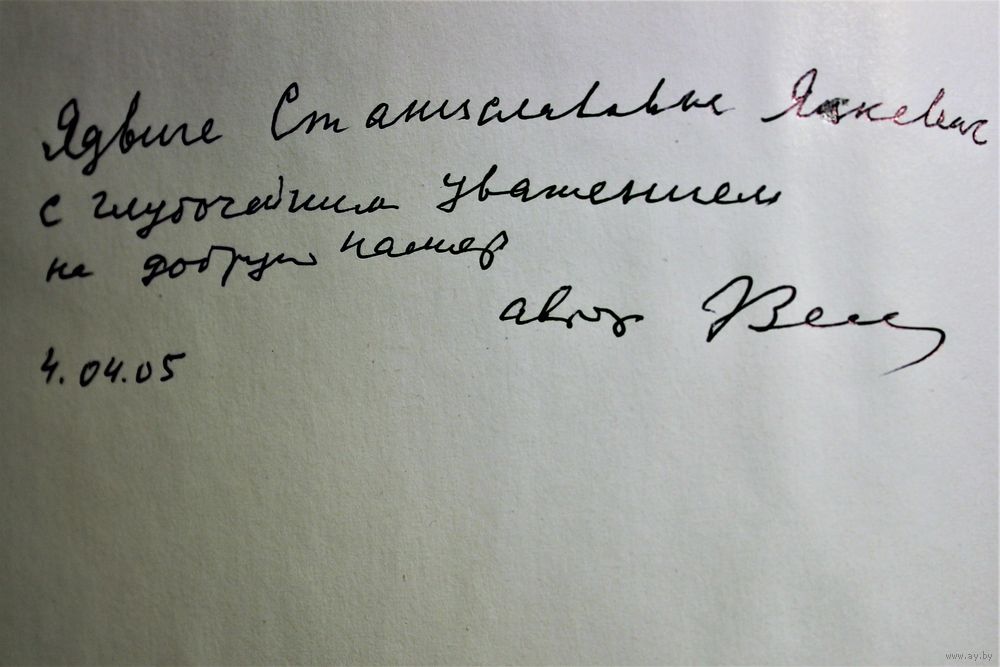 Ядвиге Станиславовне
с глубочайшим уважением
на добрую память
автор
4.04.05
www.ay.by